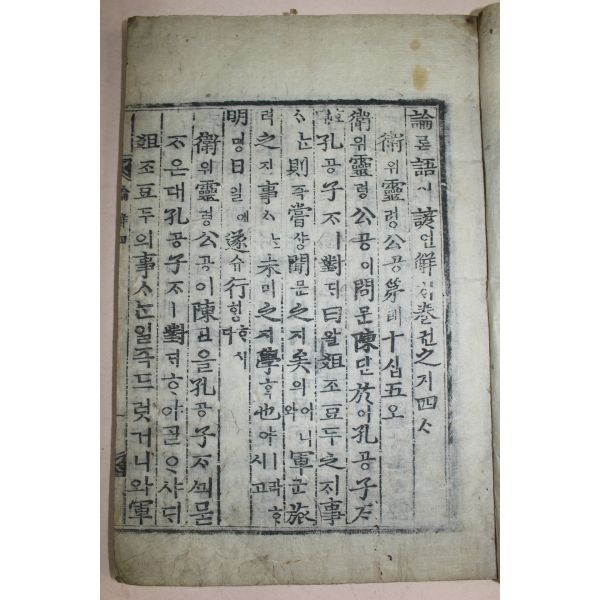 論론語어諺언解ᄒᆡ卷권之지四ᄉᆞ
衛위靈령公공第뎨十십五오
衛위靈령公공이問문陳딘於어孔공子ᄌᆞ
孔공子ᄌᆞㅣ對ᄃᆡ曰왈俎조豆두之지事
ᄉᆞᄂᆞᆫ則즉嘗샹聞문之지矣의어니와軍군旅
려之지事ᄉᆞᄂᆞᆫ未미之지學ᄒᆞᆨ也야ㅣ라ᄒᆞ시고
明명日일에遂슈行ᄒᆡᆼᄒᆞ시다
衛위靈령公공이陳딘을孔공子ᄌᆞᄭᅴ묻
ᄌᆞ온대孔공子ᄌᆞㅣ對ᄃᆡᄒᆞ야ᄀᆞᆯᄋᆞ샤ᄃᆡ
俎조豆두의事ᄉᆞᄂᆞᆫ일즉드럿거니와軍